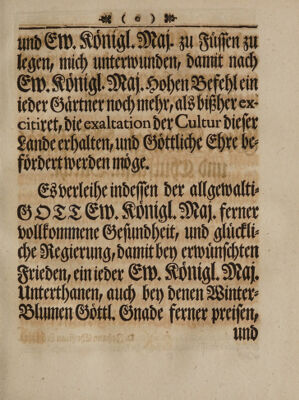 ( 6 )
und Ew. Königl. Maj. zu Füssen zu
legen, mich unterwunden, damit nach
Ew. Königl. Maj. Hohen Befehl ein
ieder Gärtner noch mehr, als bißher ex-
citiret, die exaltation der Cultur dieser
Lande erhalten, und Göttliche Ehre be-
fördert werden möge.
Es verleihe indessen der allgewalti-
GOTT Ew. Königl. Maj. ferner
vollkommene Gesundheit, und glückli-
che Regierung, damit bey erwünschten
Frieden, ein ieder Ew. Königl. Maj.
Unterthanen, auch bey denen Winter-
Blumen Göttl. Gnade ferner preisen,
und